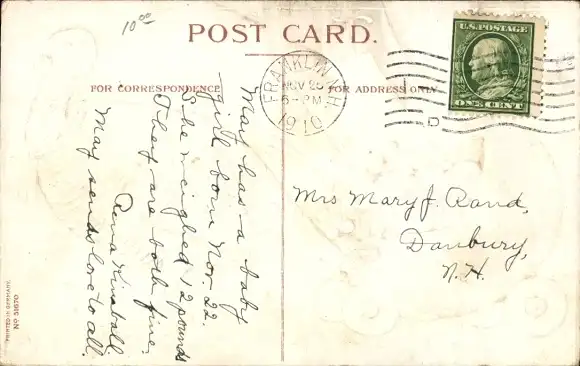 10⁰⁰
POST CARD.
U.S. POSTAGE
ONE CENT
FRANKLIN, N.H.
NOV 26
6-PM
1910
FOR CORRESPONDENCE
FOR ADDRESS ONLY
May has a baby
girl born Nov. 22.
She weighed 12 pounds
They are both fine.
Rena Kimball.
May sends love to all.
Mrs Mary J. Rand,
Danbury,
N.H.
PRINTED IN GERMANY.
No 51670